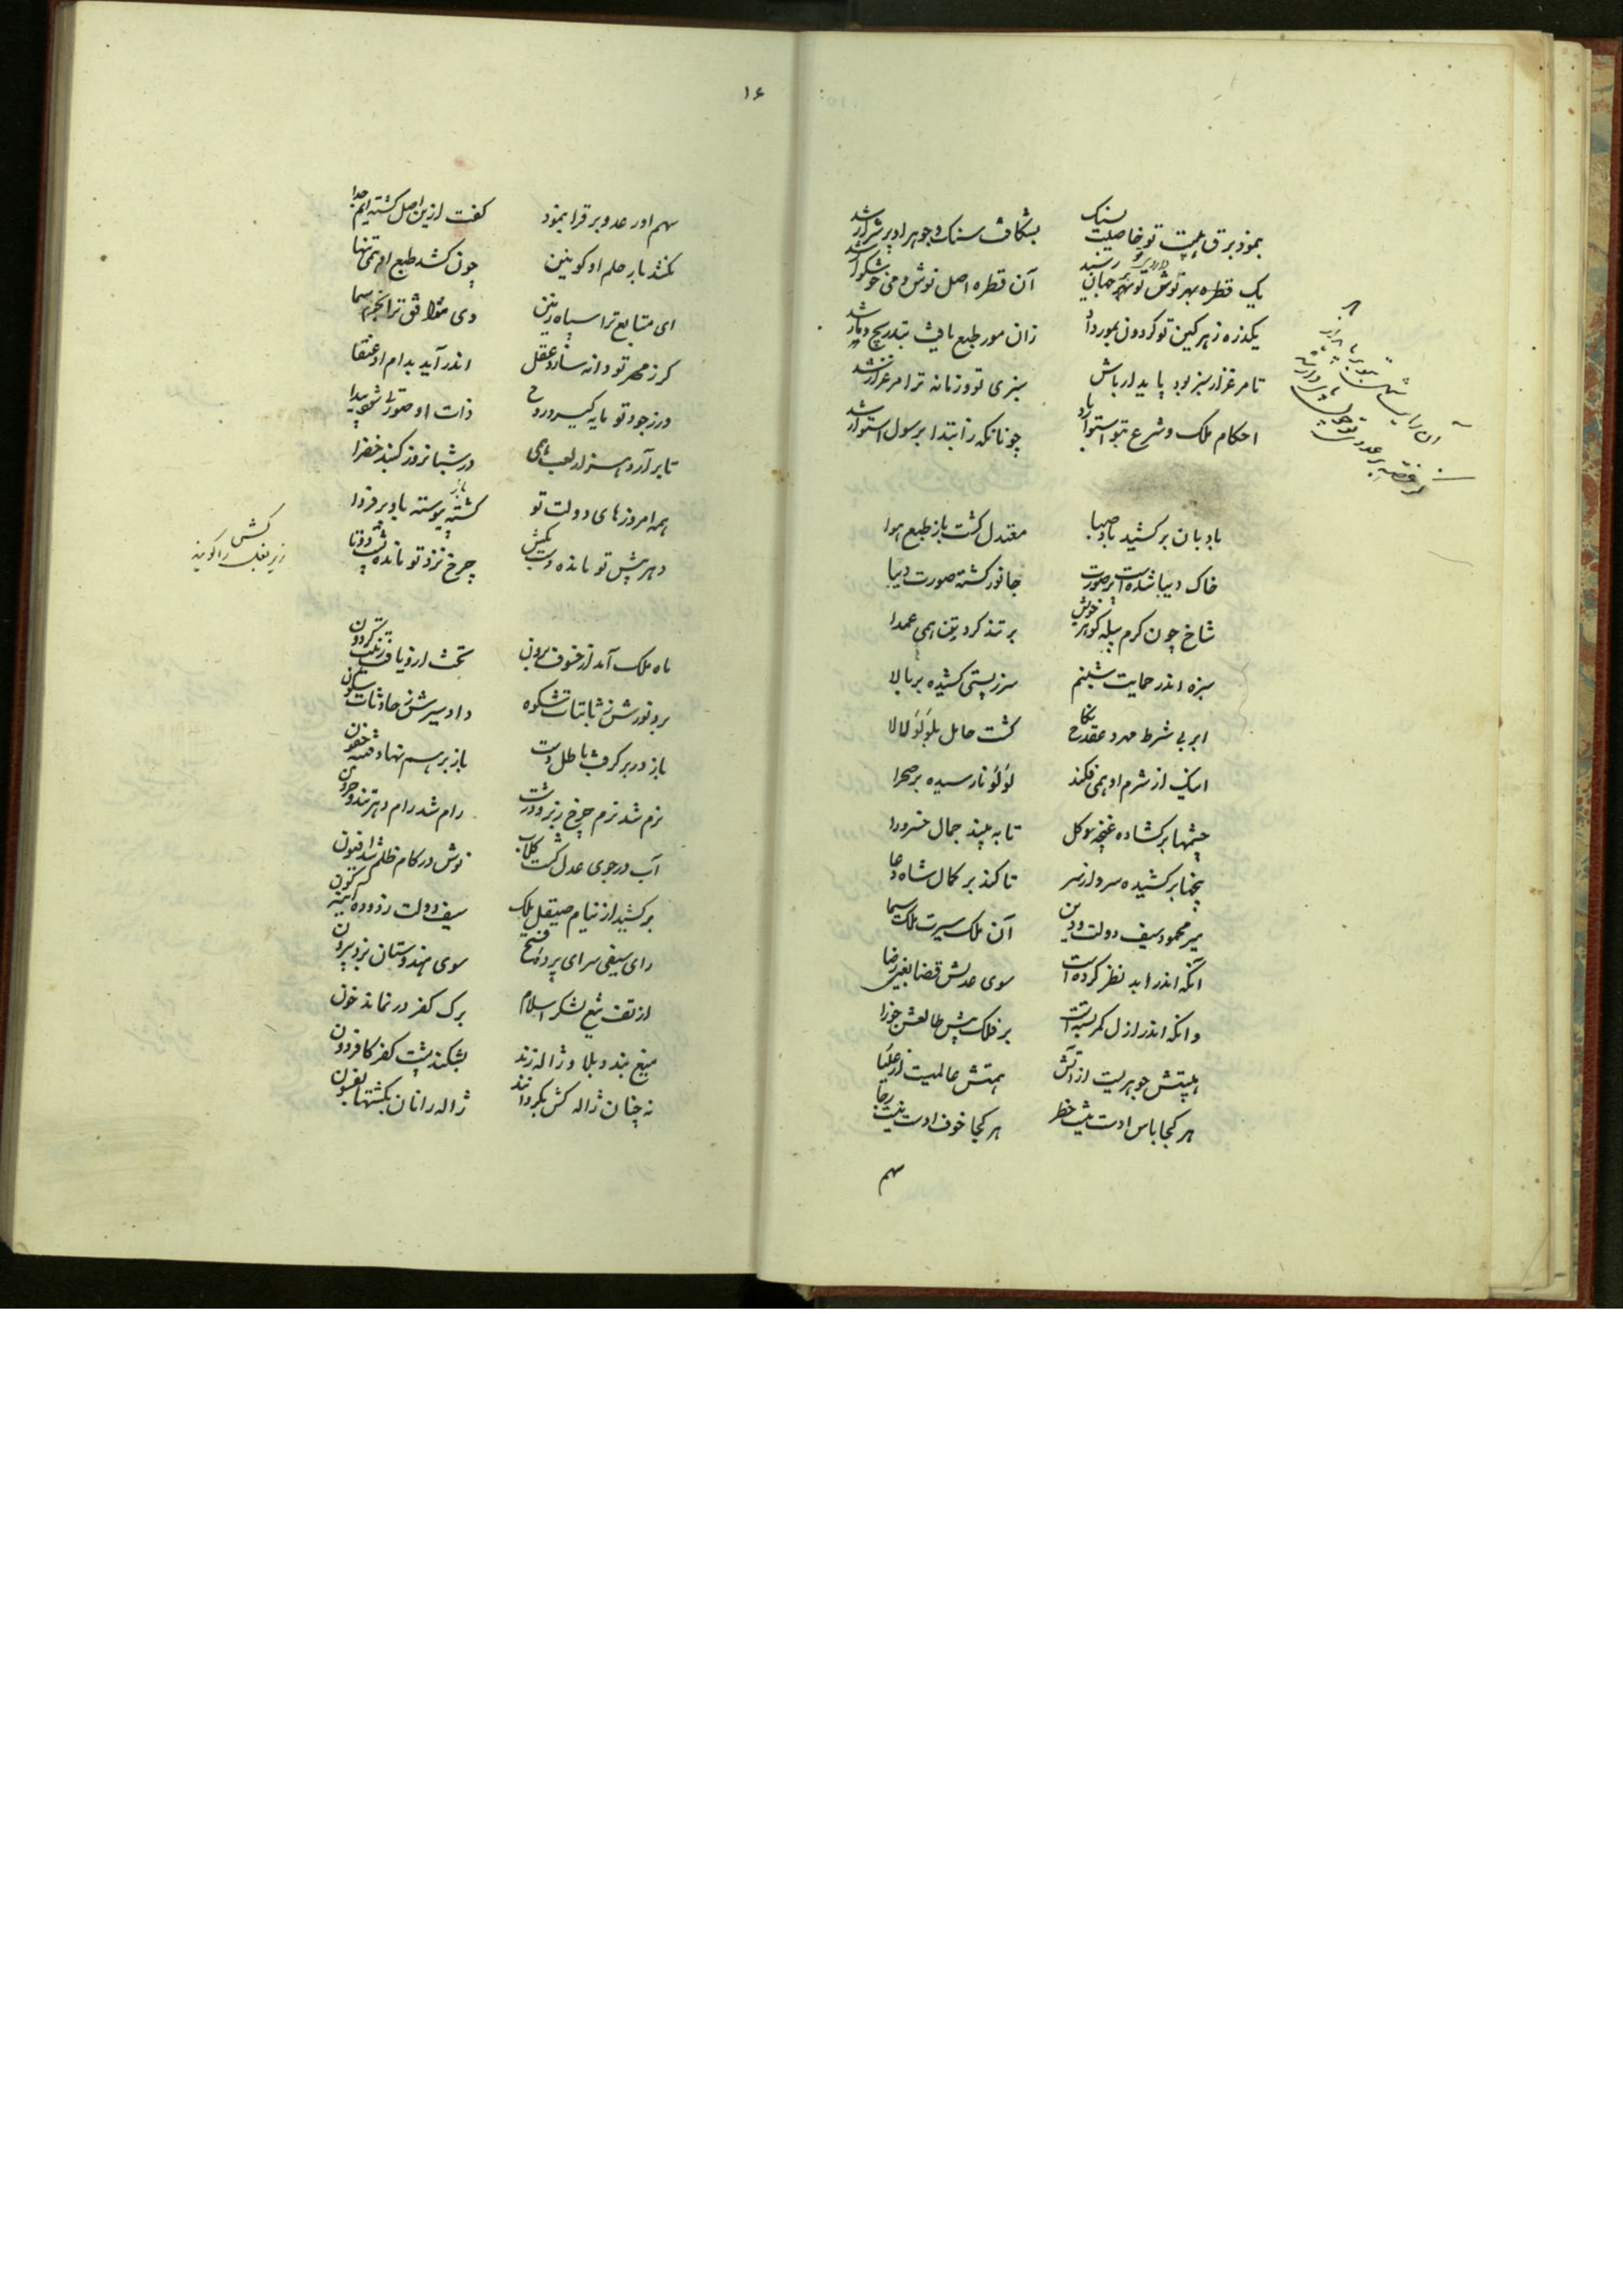 بنمود برق هیبت تو خاصیت بسنک بشکافت سنک و جوهر او پر شرار شد
یک قطره بهر نوش تو بهر جهان رسید آن قطره اصل نوش و می خوشکوار شد
یکذره زهر کین تو کردون بمور داد زان مور طبع یافت بتدریج و مار شد
تا مرغزار سبز بود پایدار باش سبزی تو و زمانه ترا مرغزار شد
احکام ملک و شرع بتو استوار باد چونانکه ز ابتدا برسول استوار شد
بادبان برکشید باد صبا معتدل کشت باز طبع هوا
خاک دیبا شده است پر صورت جانور کشته صورت دیبا
شاخ چون کرم پیله کوهر خویش بر تند کرد تن همی عمدا
سبزه اندر حمایت شبنم سر ز پستی کشیده بر بالا
ابر بی شرط مهر و عقد نکاح کشت حامل بلؤلؤ لالا
اینک از شرم او همی فکند لؤلؤ نارسیده بر صحرا
چشمها برکشاده غنچه و کل تا به بیند جمال خسرو را
پنجها برکشیده سرو از سر تا کند بر کمال شاه دعا
میر محمود سیف دولت و دین آن ملک سیرت ملک سیما
آنکه اندر ابد نظر کرده است سوی عدلش قضا بغیر رضا
وانکه اندر ازل کمر بسته است بر فلک پیش طالعش جوزا
هیبتش جوهریست از آتش همتش عالمیت از علیا
هر کجا باس اوست نیست خطر هر کجا خوف اوست نیست رجا
سهم
۱۶
سهم او در عدو برق را بنمود کفت ازین اصل کشته ایم جدا
نکشد بار حلم او کونین چون کشد طبع او همی تنها
ای متابع ترا سپاه زمین وی موافق ترا نجوم سما
کر ز مهر تو دانه سازد عقل اندر آید بدام او عنقا
ور ز جود تو مایه کیرد روح ذات او صورتی شود پیدا
تا برآرد هزار لعب همی در شبانروز کنبد خضرا
همه امروزهای دولت تو کشته پیوسته باد بر فردا
دهر پیش تو مانده دست بکش چرخ نزد تو مانده پشت دوتا
کش زیر بغل را کویند
ماه ملک آمد از خسوف برون تخت ازو یافت زینت کردون
برد نورش ز ثابتات شکوه داد سیرش بحادثات سکون
باز در بر کرفت باطل دست باز بر هم نهاد فتنه جفون
نرم شد نرم چرخ زبر و درشت رام شد رام دهر تند و حرون
آب در جوی عدل کشت کلاب نوش در کام ظلم شد افیون
برکشید از نیام صیقل ملک سیف دولت زدوده آینه کون
رای سیفی سرای پرده فتح سوی هندوستان بزد بیرون
از تف تیغ لشکر اسلام برک کفر در نماند خون
میغ بندد بلا و ژاله زند بشکند پشت کفر کافر دون
نه چنان ژاله کش بکردانند ژاله رانان بکشتها بفسون